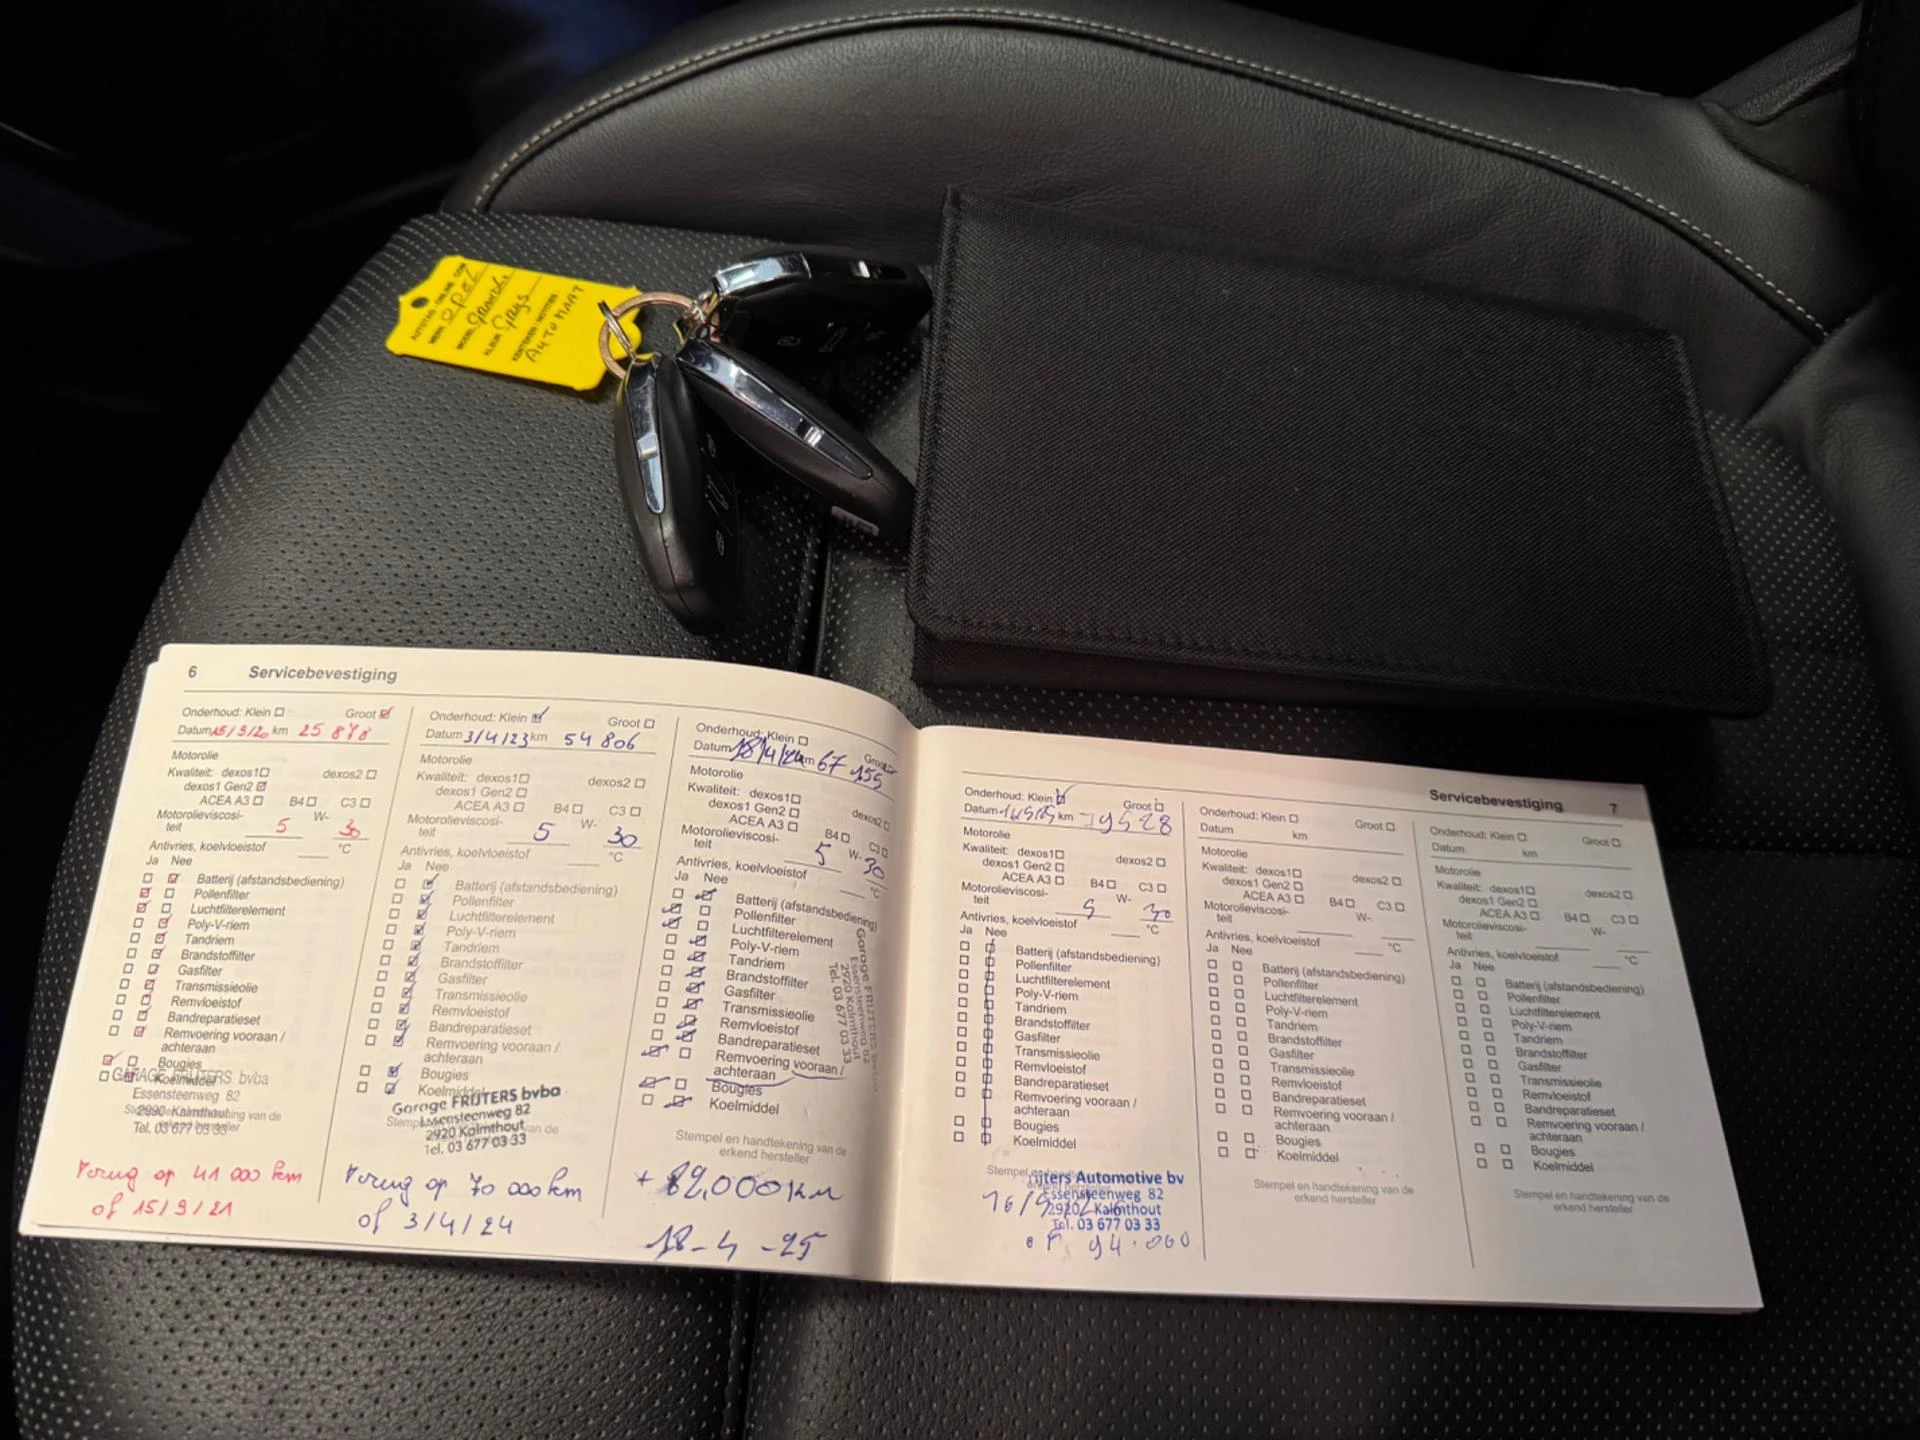 AUTOTAG-ONLINE.COM
MERK OPEL
MODEL GRANDLA
KLEUR Grijs
KENTEKEN / NOTITIES
AUTO MAAT
6 Servicebevestiging
Onderhoud: Klein Groot
Datum 15/9/20 km 25 878
Motorolie
Kwaliteit: dexos1 dexos2
dexos1 Gen2
ACEA A3 B4 C3
Motorolieviscosi-
teit 5 W- 30
Antivries, koelvloeistof °C
Ja Nee
Batterij (afstandsbediening)
Pollenfilter
Luchtfilterelement
Poly-V-riem
Tandriem
Brandstoffilter
Gasfilter
Transmissieolie
Remvloeistof
Bandreparatieset
Remvoering vooraan /
achteraan
Bougies
Koelmiddel
GARAGE FRIJTERS bvba
Essensteenweg 82
2990 Kalmthout
Tel. 03 677 03 33
Terug op 41 000 km
of 15/9/21
Onderhoud: Klein Groot
Datum 3/4/23 km 54 806
Motorolie
Kwaliteit: dexos1 dexos2
dexos1 Gen2
ACEA A3 B4 C3
Motorolieviscosi-
teit 5 W- 30
Antivries, koelvloeistof °C
Ja Nee
Batterij (afstandsbediening)
Pollenfilter
Luchtfilterelement
Poly-V-riem
Tandriem
Brandstoffilter
Gasfilter
Transmissieolie
Remvloeistof
Bandreparatieset
Remvoering vooraan /
achteraan
Bougies
Koelmiddel
Garage FRIJTERS bvba
Essensteenweg 82
2920 Kalmthout
Tel. 03 677 03 33
Terug op 70 000 km
of 3/4/24
Onderhoud: Klein Groot
Datum 18/4/24 km 67 155
Motorolie
Kwaliteit: dexos1 dexos2
dexos1 Gen2
ACEA A3 B4 C3
Motorolieviscosi-
teit 5 W- 30
Antivries, koelvloeistof °C
Ja Nee
Batterij (afstandsbediening)
Pollenfilter
Luchtfilterelement
Poly-V-riem
Tandriem
Brandstoffilter
Gasfilter
Transmissieolie
Remvloeistof
Bandreparatieset
Remvoering vooraan /
achteraan
Bougies
Koelmiddel
Garage FRIJTERS bvba
Essensteenweg 82
2920 Kalmthout
Tel. 03 677 03 33
Stempel en handtekening van de
erkend hersteller
+ 82.000 km
18-4-25
Servicebevestiging 7
Onderhoud: Klein Groot
Datum km 79528
Motorolie
Kwaliteit: dexos1 dexos2
dexos1 Gen2
ACEA A3 B4 C3
Motorolieviscosi-
teit 5 W- 30
Antivries, koelvloeistof °C
Ja Nee
Batterij (afstandsbediening)
Pollenfilter
Luchtfilterelement
Poly-V-riem
Tandriem
Brandstoffilter
Gasfilter
Transmissieolie
Remvloeistof
Bandreparatieset
Remvoering vooraan /
achteraan
Bougies
Koelmiddel
Automotive bv
Essensteenweg 82
2920 Kalmthout
Tel. 03 677 03 33
of 94.000
Onderhoud: Klein Groot
Datum km
Motorolie
Kwaliteit: dexos1 dexos2
dexos1 Gen2
ACEA A3 B4 C3
Motorolieviscosi-
teit W-
Antivries, koelvloeistof °C
Ja Nee
Batterij (afstandsbediening)
Pollenfilter
Luchtfilterelement
Poly-V-riem
Tandriem
Brandstoffilter
Gasfilter
Transmissieolie
Remvloeistof
Bandreparatieset
Remvoering vooraan /
achteraan
Bougies
Koelmiddel
Stempel en handtekening van de
erkend hersteller
Onderhoud: Klein Groot
Datum km
Motorolie
Kwaliteit: dexos1 dexos2
dexos1 Gen2
ACEA A3 B4 C3
Motorolieviscosi-
teit W-
Antivries, koelvloeistof °C
Ja Nee
Batterij (afstandsbediening)
Pollenfilter
Luchtfilterelement
Poly-V-riem
Tandriem
Brandstoffilter
Gasfilter
Transmissieolie
Remvloeistof
Bandreparatieset
Remvoering vooraan /
achteraan
Bougies
Koelmiddel
Stempel en handtekening van de
erkend hersteller